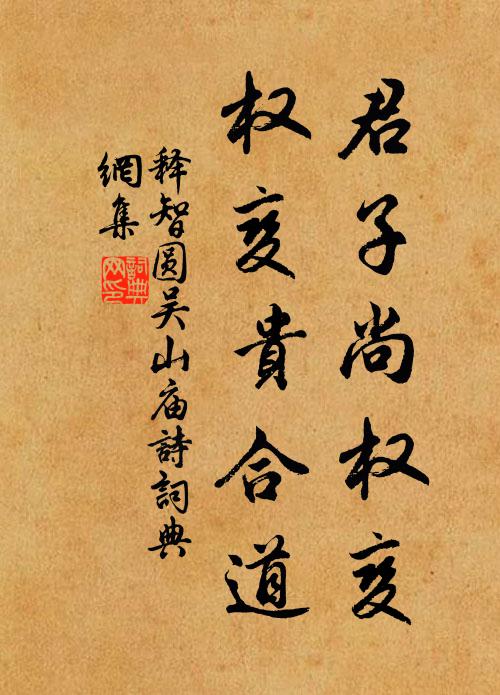 君子尚权变
权变貴合道
释智圆吴山庙詩詞典
網集
詞典
网印